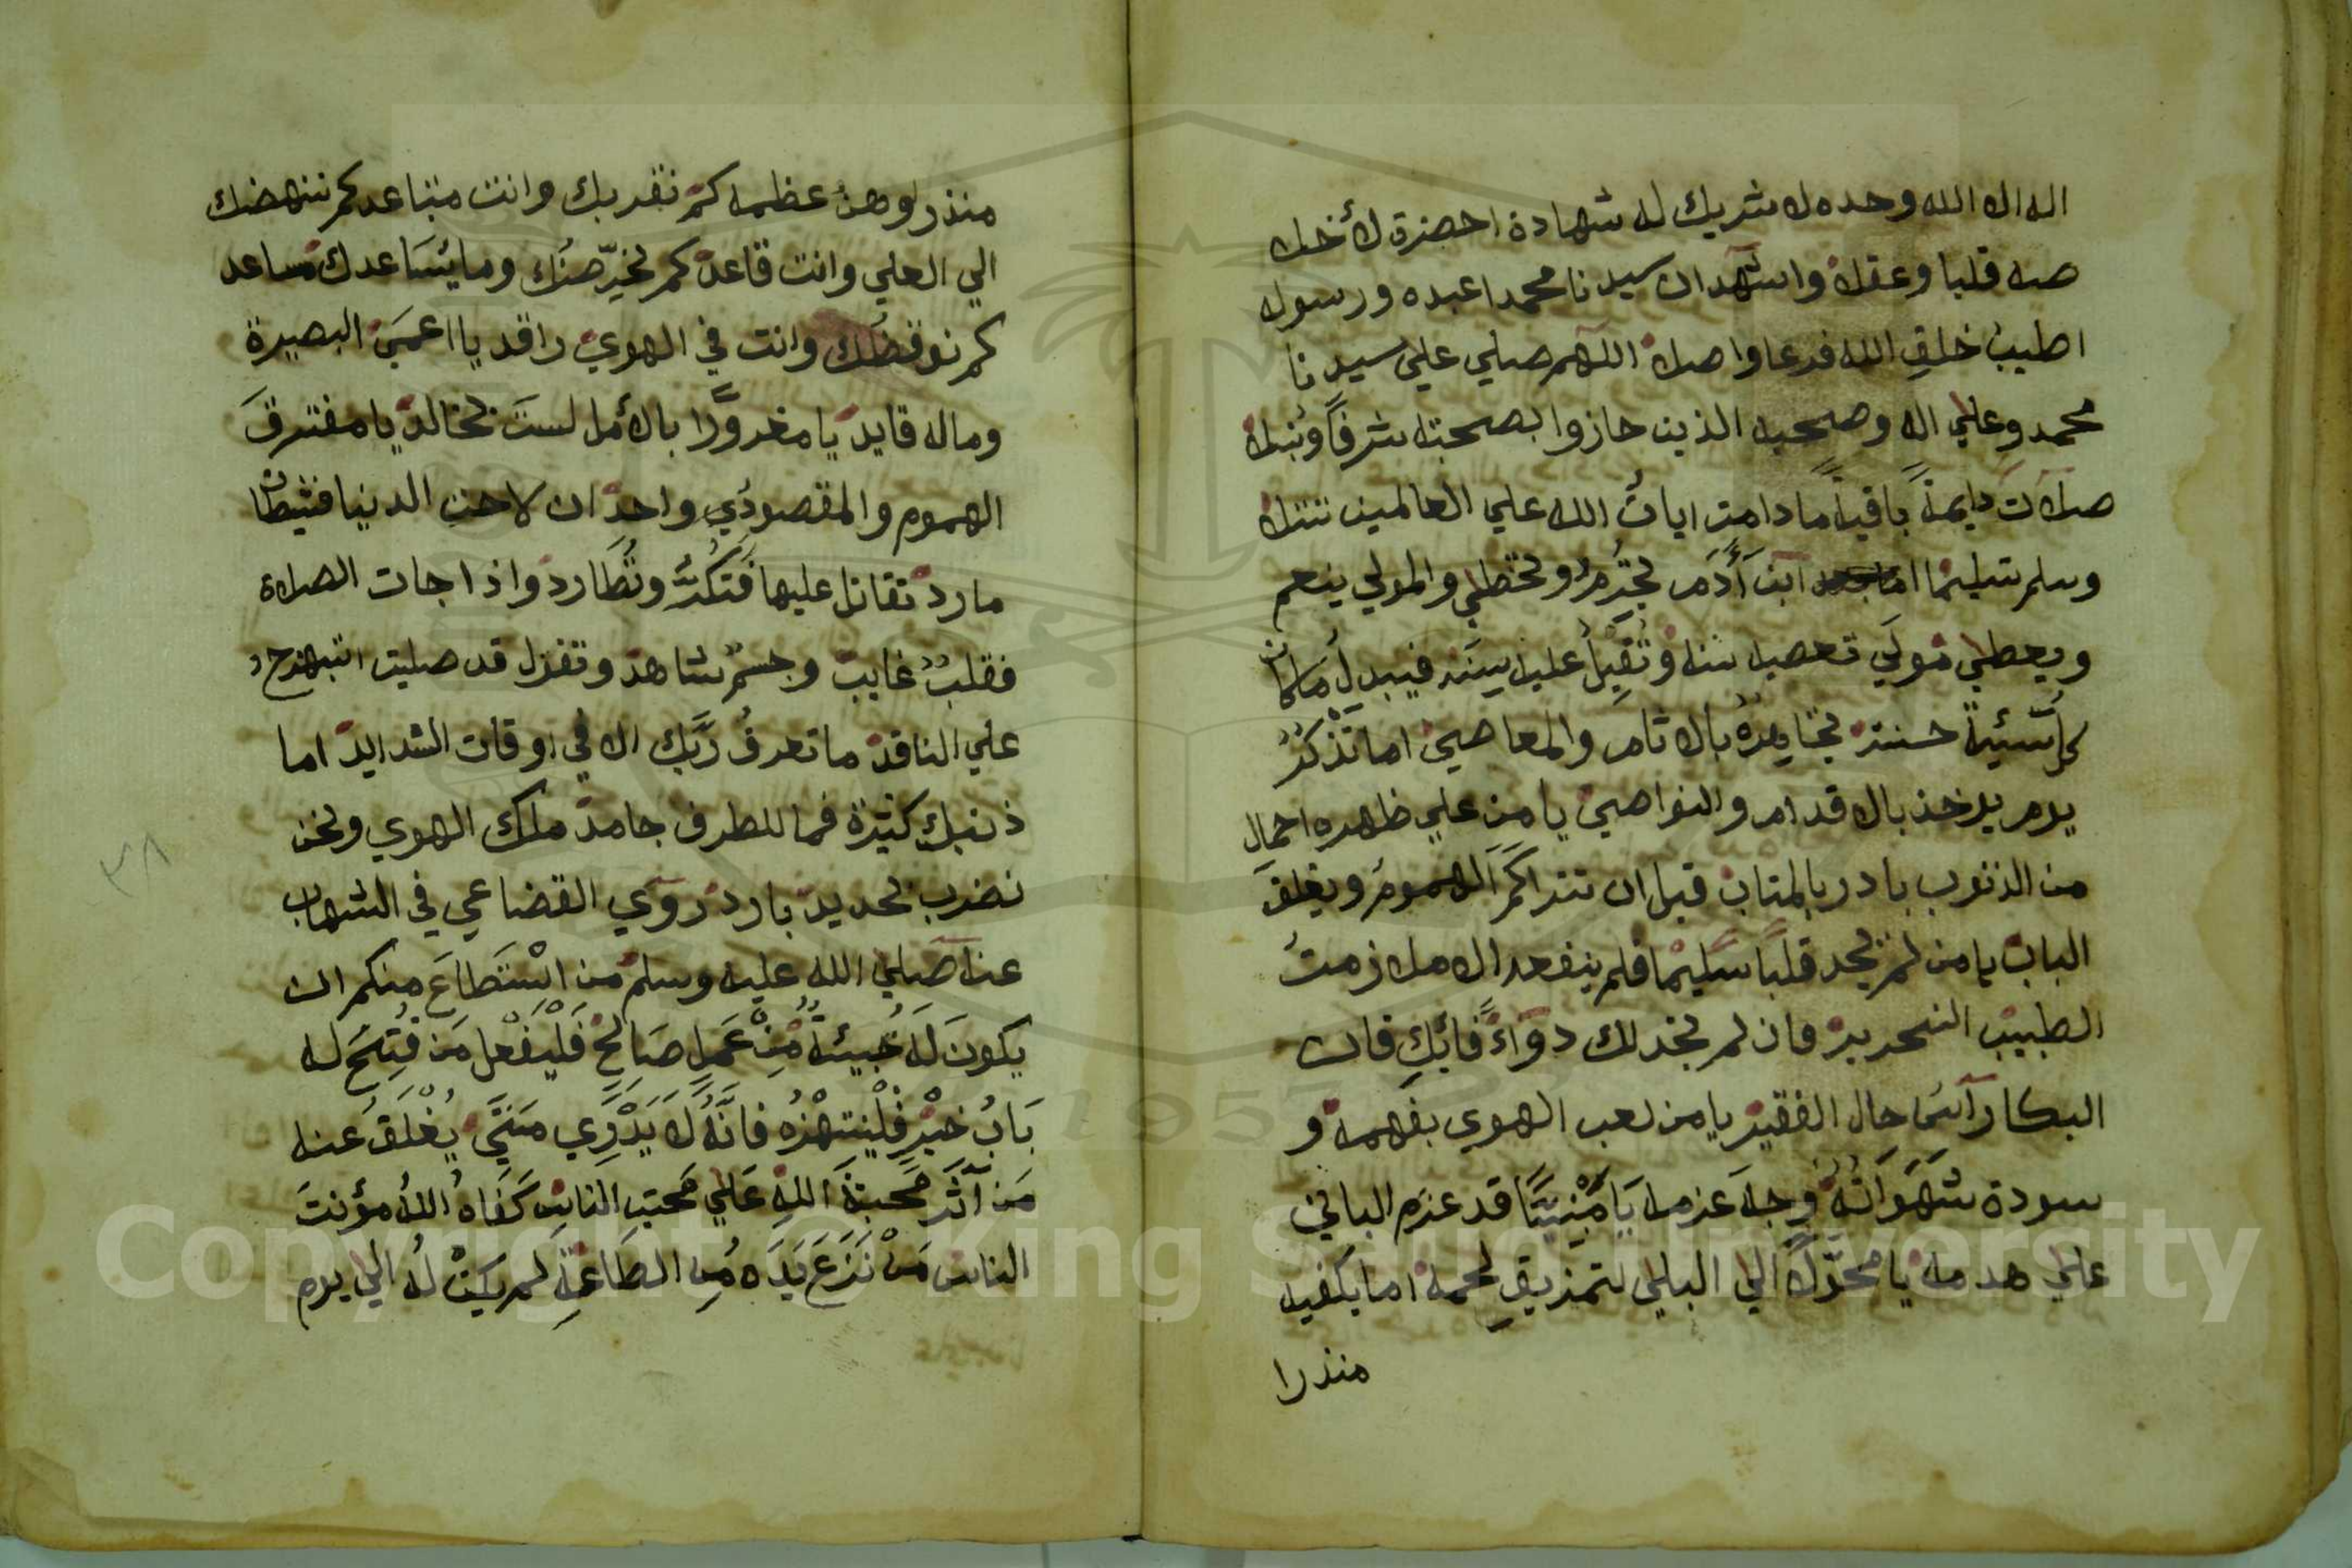 اله الا الله وحده لا شريك له شهادة احضرة لأخلا
صه قلبا وعقلا واشهد ان سيدنا محمدا عبده ورسوله
اطيب خلق الله فرعا واصلا اللهم صلي علي سيدنا
محمد وعلي اله وصحبه الذين حازوا بصحبته شرفا ونبلا
صلات دايمة باقية ما دامت ايات الله علي العالمين تتلا
وسلم تسليما ابن آدم تجرم وتخطي والمولي ينعم
ويعطي مولي تعصيه سنه وتقبل عليه فيبدل مكان
كل سيئة حسنة تجاهره بالاثام والمعاصي اما تذكر
يوم يوخذ بالاقدام والنواصي يا من علي ظهره احمال
من الذنوب بادر بالمتاب قبل ان تتراكم الهموم ويغلق
الباب يا من لم يجد قلبا سليما فلم ينفعه الا ملازمت
الطبيب النحرير فان لم تجد لك دواء فابك فان
البكا رآس حال الفقير يا من لعب الهوي بفهمه و
سودة شهواته وجه عزمه يا مبنيا قد عزم الباني
علي هدمه يا محولا الي البلي لتمزيق لحمه اما يكفيه
منذرا
منذرا وهن عظمه كم نقربك وانت متباعد كم ننهضك
الي العلي وانت قاعد كم نحرضك وما يساعدك مساعد
كم نوقضك وانت في الهوي راقد يا اعمي البصيرة
وماله قايد يا مغرورا بالأمل لست بخالد يا مفترق
الهموم والمقصودي واحد ان لاحت الدنيا فشيطان
مارد تقاتل عليها فتكر وتطارد واذا جات الصلاة
فقلب غايب وجسم شاهد وتقول قد صليت اتبهرج
علي الناقد ما تعرف ربك الا في اوقات الشدايد اما
ذنبك كثيرة فما للطرف جامد ملك الهوي ونحن
نضرب بحديد بارد روي القضاعي في الشهاب
عنه صلي الله عليه وسلم من استطاع منكم ان
يكون له خبيئة من عمل صالح فليفعل من فتح له
باب خير فلينتهزه فانه لا يدري متي يغلق عنه
من آثر محبة الله علي محبت الناس كفاه الله مؤنت
الناس من نزع يده من الطاعة لم يكن له الي يوم
٣٨
Copyright © King Saud University
1957